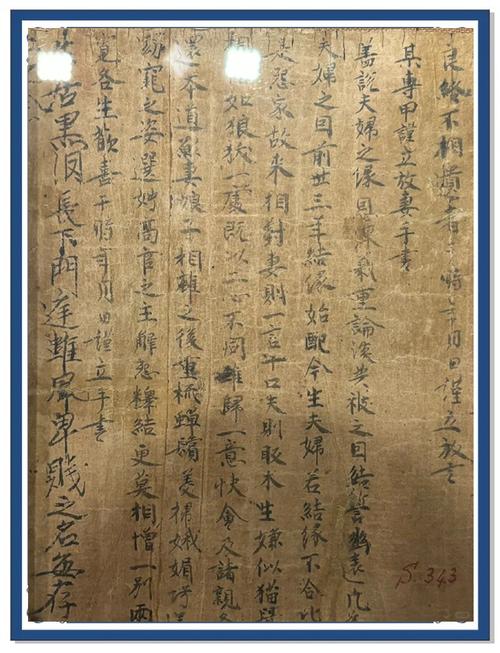 良終不相遺者于時年月日謹立放書
某專甲謹立放妻手書
蓋說夫婦之緣恩深義重論談共被之因結誓幽遠凡為
夫婦之因前世三年結緣始配今生夫婦若結緣不合比
是怨家故來相對妻則一言十口夫則反木生嫌似猫鼠
相憎如狼犺一處既以二心不同難歸一意快會及諸親各
還本道願妻娘子相離之後重梳蟬鬢美掃娥媚
窈窕之姿選娉高官之主解怨釋結更莫相憎一別兩
寬各生歡喜于時年月日謹立手書
黑淚長下門庭雖是卑賤之名
S.343